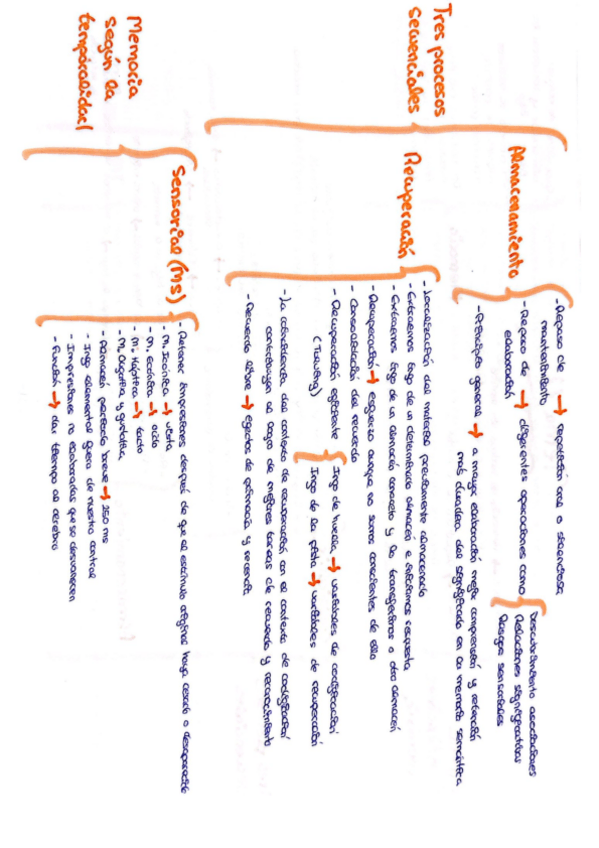 Tres procesos
secuenciales
Almacenamiento
- Repaso de → repetición oral o silenciosa
mantenimiento
- Repaso de → diferentes operaciones como
elaboración
Descubrimiento asociaciones
Relaciones significativas
Rasgos sensoriales
- Principio general → a mayor elaboración mejor comprensión y retención
más duradera del significado en la memoria semántica
Recuperación
- Localización del material previamente almacenado
- Extraemos info de un determinado almacén e emitimos respuesta
- Extraemos info de un almacén concreto y la transferimos a otro almacén
- Recuperación → esfuerzo aunque no somos conscientes de ello
- Consolidación del recuerdo
- Recuperación eficiente
(Tulving)
Info de huella → variables de codificación
Info de la pista → variables de recuperación
- La coincidencia del contexto de recuperación con el contexto de codificación
constituyen el logro de mejores tareas de recuerdo y reconocimiento
- Recuerdo libre → efectos de primacía y recencia
Memoria
según la
temporalidad
Sensorial (MS)
- Retener impresiones después de que el estímulo original haya cesado o desaparecido
- M. Icónica → vista
- M. Ecóica → oído
- M. Háptica → tacto
- M. Olfativa y gustativa
- Almacén período breve → 250 ms
- Info elemental fuera de nuestro control
- Impresiones no elaboradas que se desvanecen
- Función → dar tiempo al cerebro